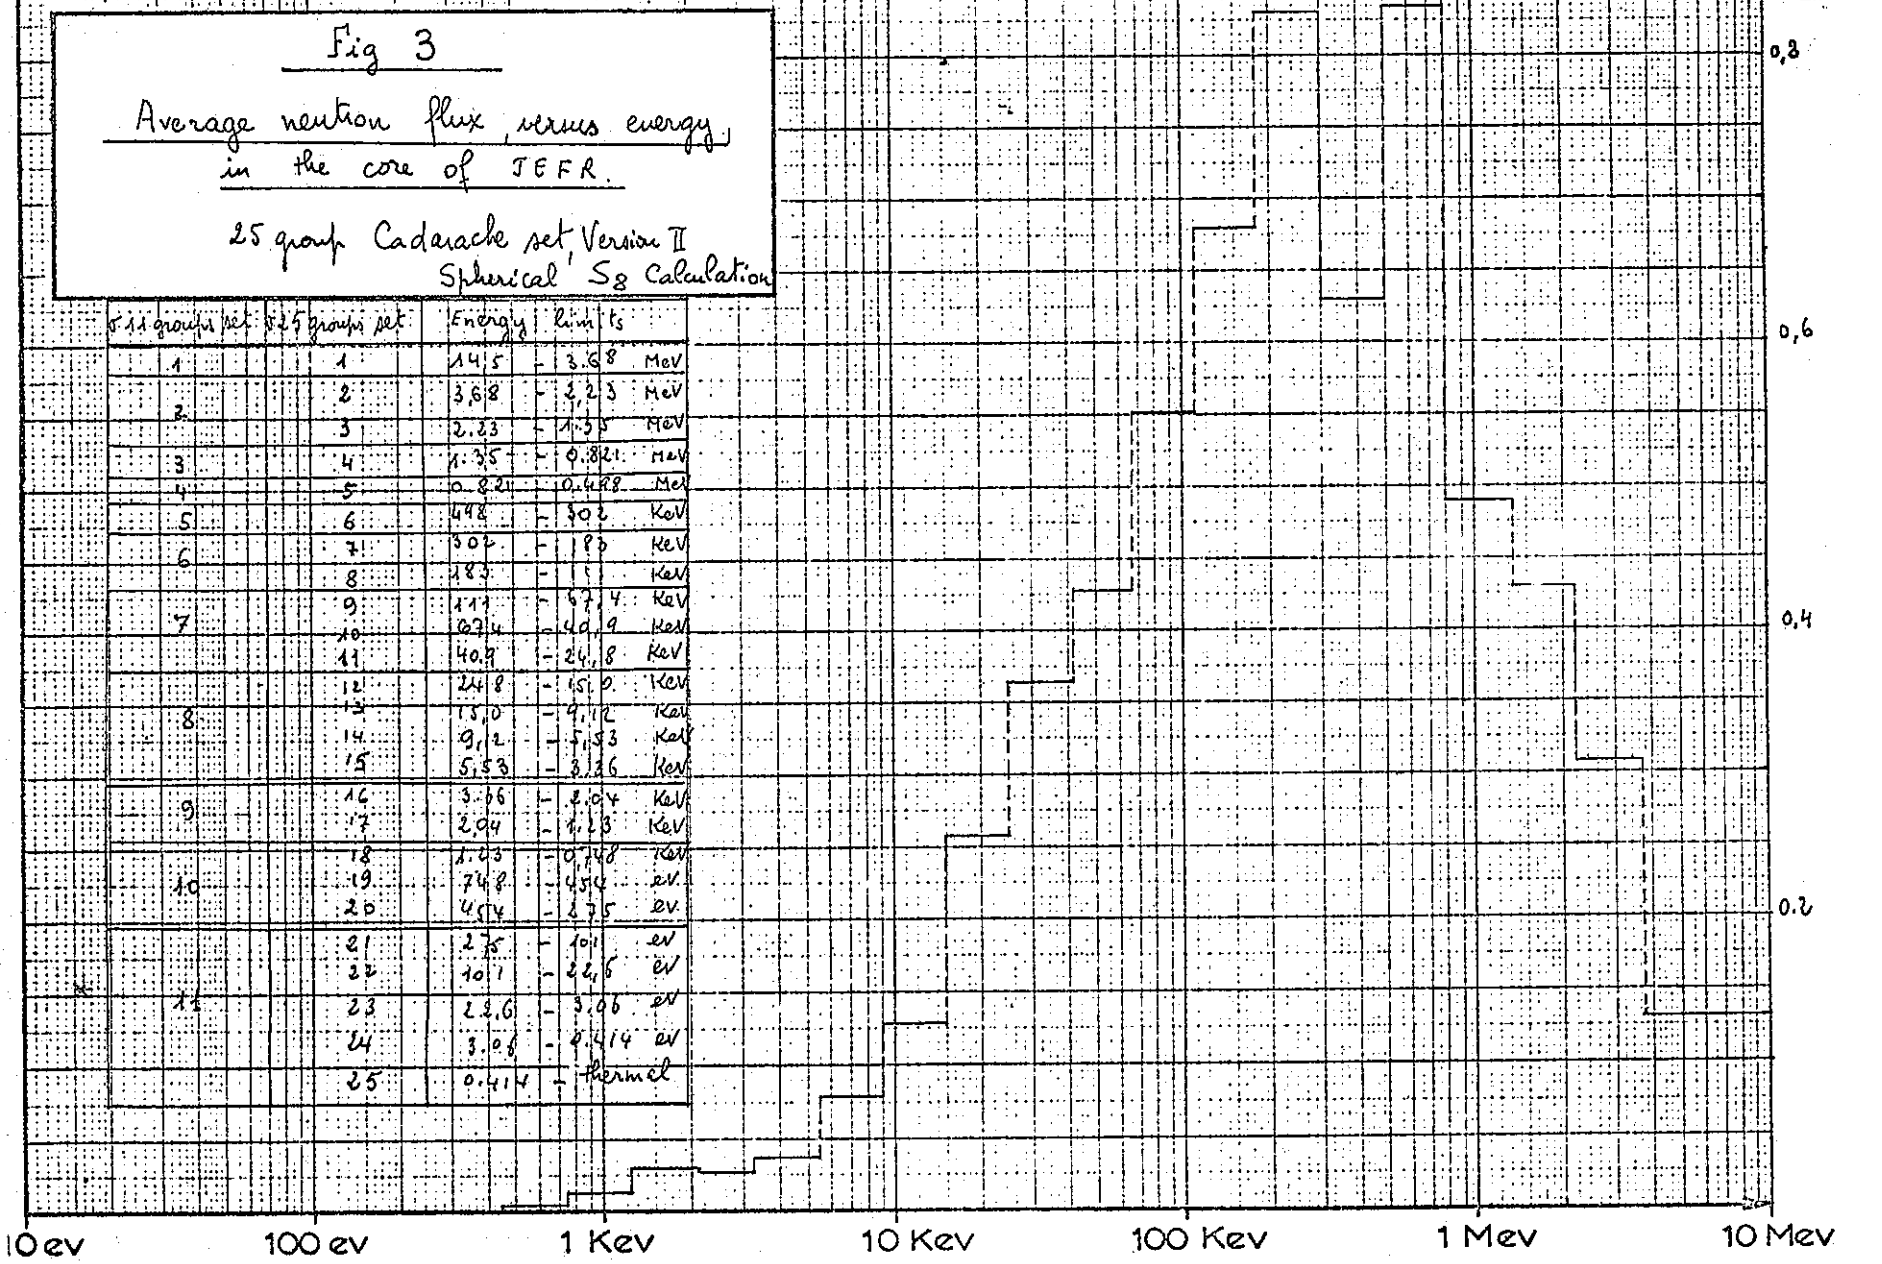 Fig 3
Average neution flux, versus energy,
in the core of JEFR.
25 group Cadarache set, Version II
Spherical S8 Calculation
σ 11 groups set σ 25 groups set Energy limits
1 1 14,5 - 3.68 MeV
2 2 3,68 - 2,23 MeV
3 2.23 - 1.35 MeV
3 4 1.35 - 0.821 MeV
4 5 0.821 - 0.498 MeV
5 6 498 - 302 KeV
6 7 302 - 183 KeV
8 183 - KeV
7 9 111 - 67,4 KeV
10 67,4 - 40,9 KeV
11 40.9 - 24,8 KeV
12 24,8 - 15,0 KeV
8 13 15,0 - 9,12 KeV
14 9,12 - 5,53 KeV
15 5,53 - 3,36 KeV
9 16 3.36 - 2.04 KeV
17 2,04 - 1.23 KeV
18 1.23 - 0,748 KeV
10 19 748 - 454 eV
20 454 - 275 eV
21 275 - 101 eV
22 101 - 22,6 eV
11 23 22,6 - 3.06 eV
24 3.06 - 0.414 eV
25 0.414 - thermal
0,8
0,6
0,4
0.2
10 ev 100 ev 1 Kev 10 Kev 100 Kev 1 Mev 10 Mev